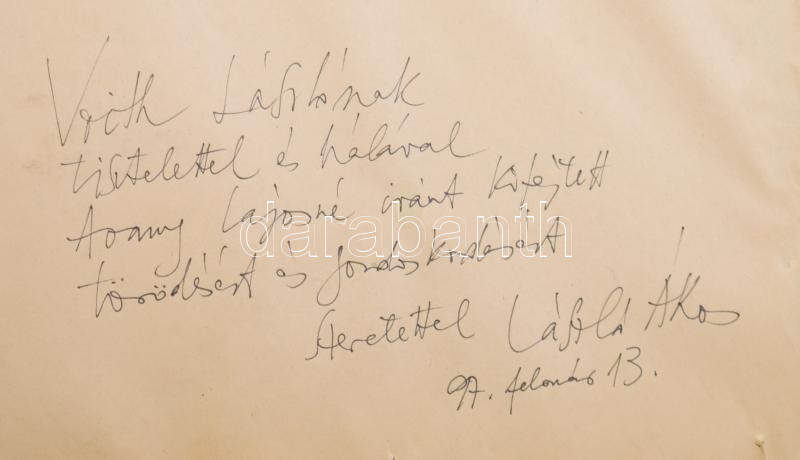 Vrith Lászlónak
tisztelettel és hálával
Arany Lajosné iránt kifejtett
törődésért és gondoskodásért
darabanth
Szeretettel László Ákos
97. február 13.